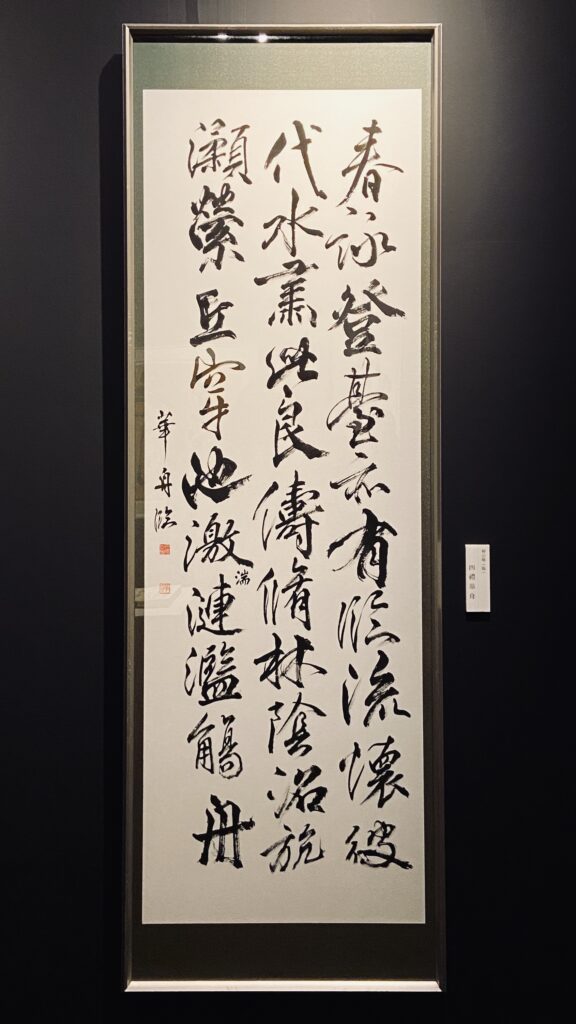 春詠登臺亦有臨流懷彼
代水肅此良儔脩林陰沼旋
瀨縈丘穿池激湍漣濫觴舟
華舟臨